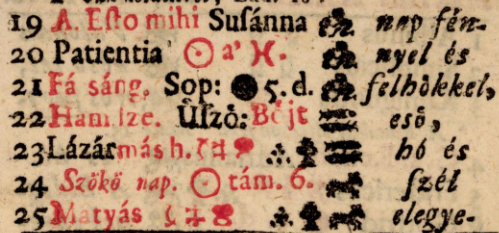 19 A. Esto mihi Susánna nap fén-
20 Patientia ☉ a' ♓. nyel és
21 Fá sáng. Sop: ● 5. d. felhőkkel,
22 Ham. sze. Úszó: Bőjt eső,
23 Lázár más h. hó és
24 Szökő nap. ☉ tám. 6. szél
25 Matyás elegye-